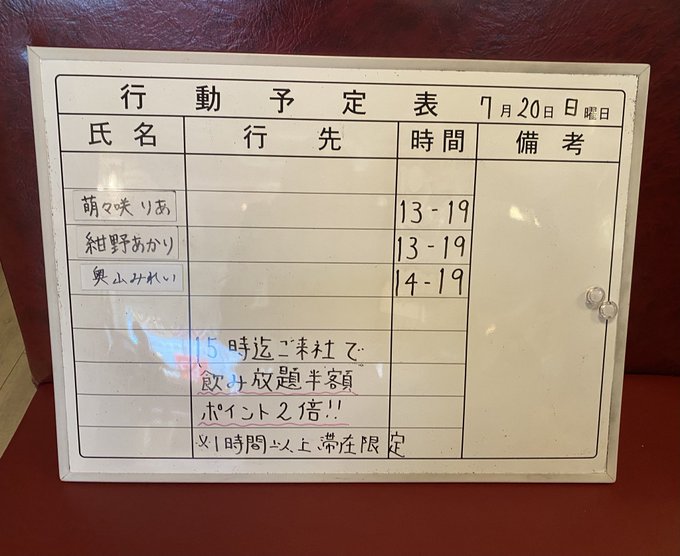 行動予定表 7月20日日曜日
氏名 行先 時間 備考
萌々咲 りあ 13-19
紺野あかり 13-19
奥山みれい 14-19
15時迄ご来社で
飲み放題半額
ポイント2倍!!
※1時間以上滞在限定